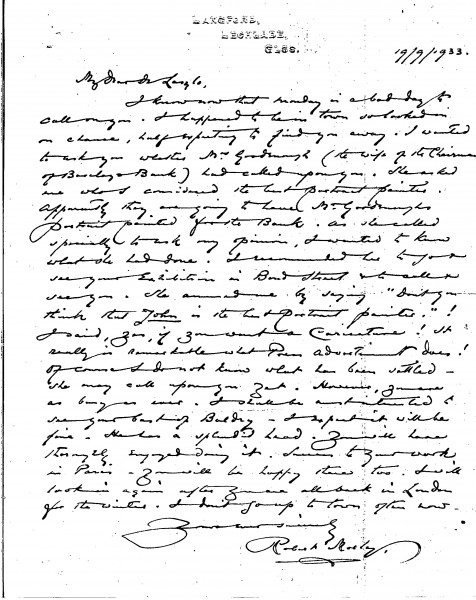 LANGFORD,
LECHLADE,
GLOS.
19/9/1933.
My Dear de Laszlo,
I know now that Monday is a bad day to
call on you. I happened to be in town so looked in
on chance, half expecting to find you away. I wanted
to ask you whether Mrs Goodenough (the wife of the Chairman
of Barclays Bank) had called upon you. She asked
me who I considered the best portrait painter.
Apparently they are going to have Mr Goodenough's
portrait painted for the Bank. As she called
specially to ask my opinion, I wanted to know
what she had done. I recommended her to go &
see your Exhibition in Bond Street & to call &
see you. She amused me by saying "Don't you
think that John is the best portrait painter."!
I said, Yes, if you want a Caricature! It
really is remarkable what Press advertisement does!
Of course I do not know what has been settled –
she may call upon you yet. However, you are
as busy as ever. I shall be most interested to
see your bust of Baldry – I expect it will be
fine. He has a splendid head. You will have
thoroughly enjoyed doing it. Success to your work
in Paris – you will be happy there too. I will
look in again after you are all back in London
for the winter. I don't go up to town often now.
Yours ever sincerely